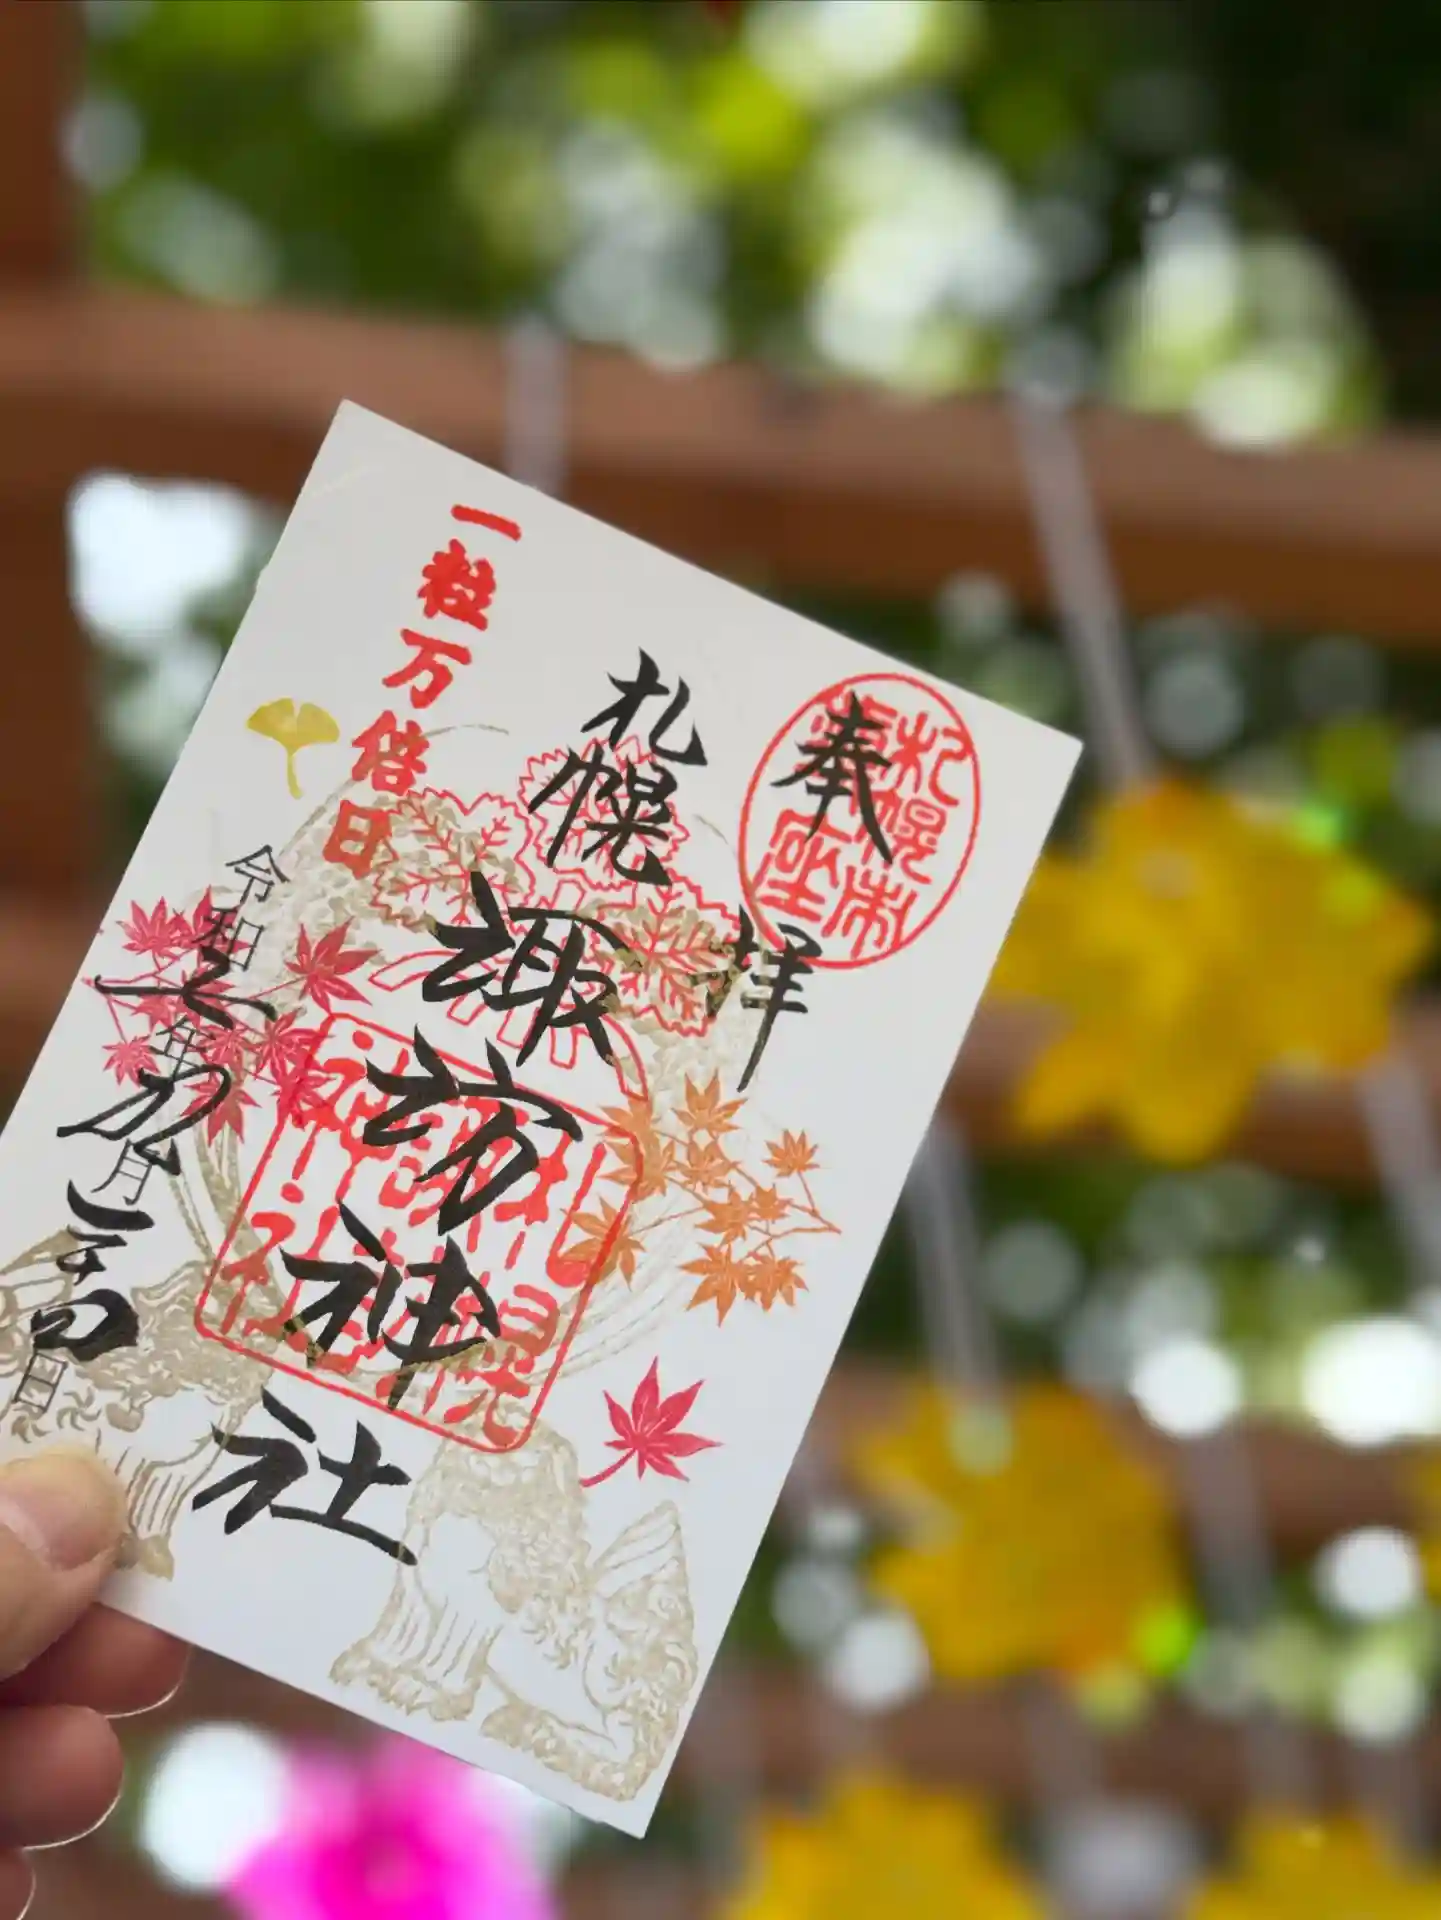 奉拝
札幌市
鎮座
札幌
諏訪神社
札幌
諏訪
神社
一粒万倍日
令和六年九月二十四日